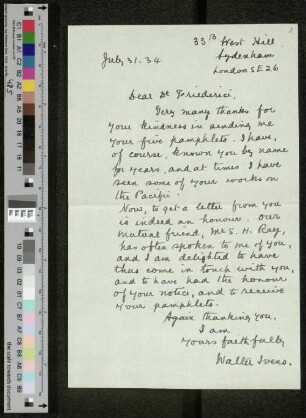 33B West Hill
Sydenham
London SE 26
July 31. 34
Dear Dr Friederici,
Very many thanks for
your kindness in sending me
your five pamphlets. I have,
of course, known you by name
for years, and at times I have
seen some of your works on
the Pacific.
Now, to get a letter from you
is indeed an honour. Our
mutual friend, Mr S. H. Ray,
has often spoken to me of you,
and I am delighted to have
thus come in touch with you,
and to have had the honour
of your notice, and to receive
your pamphlets.
Again thanking you,
I am
Yours faithfully
Walter Ivens.